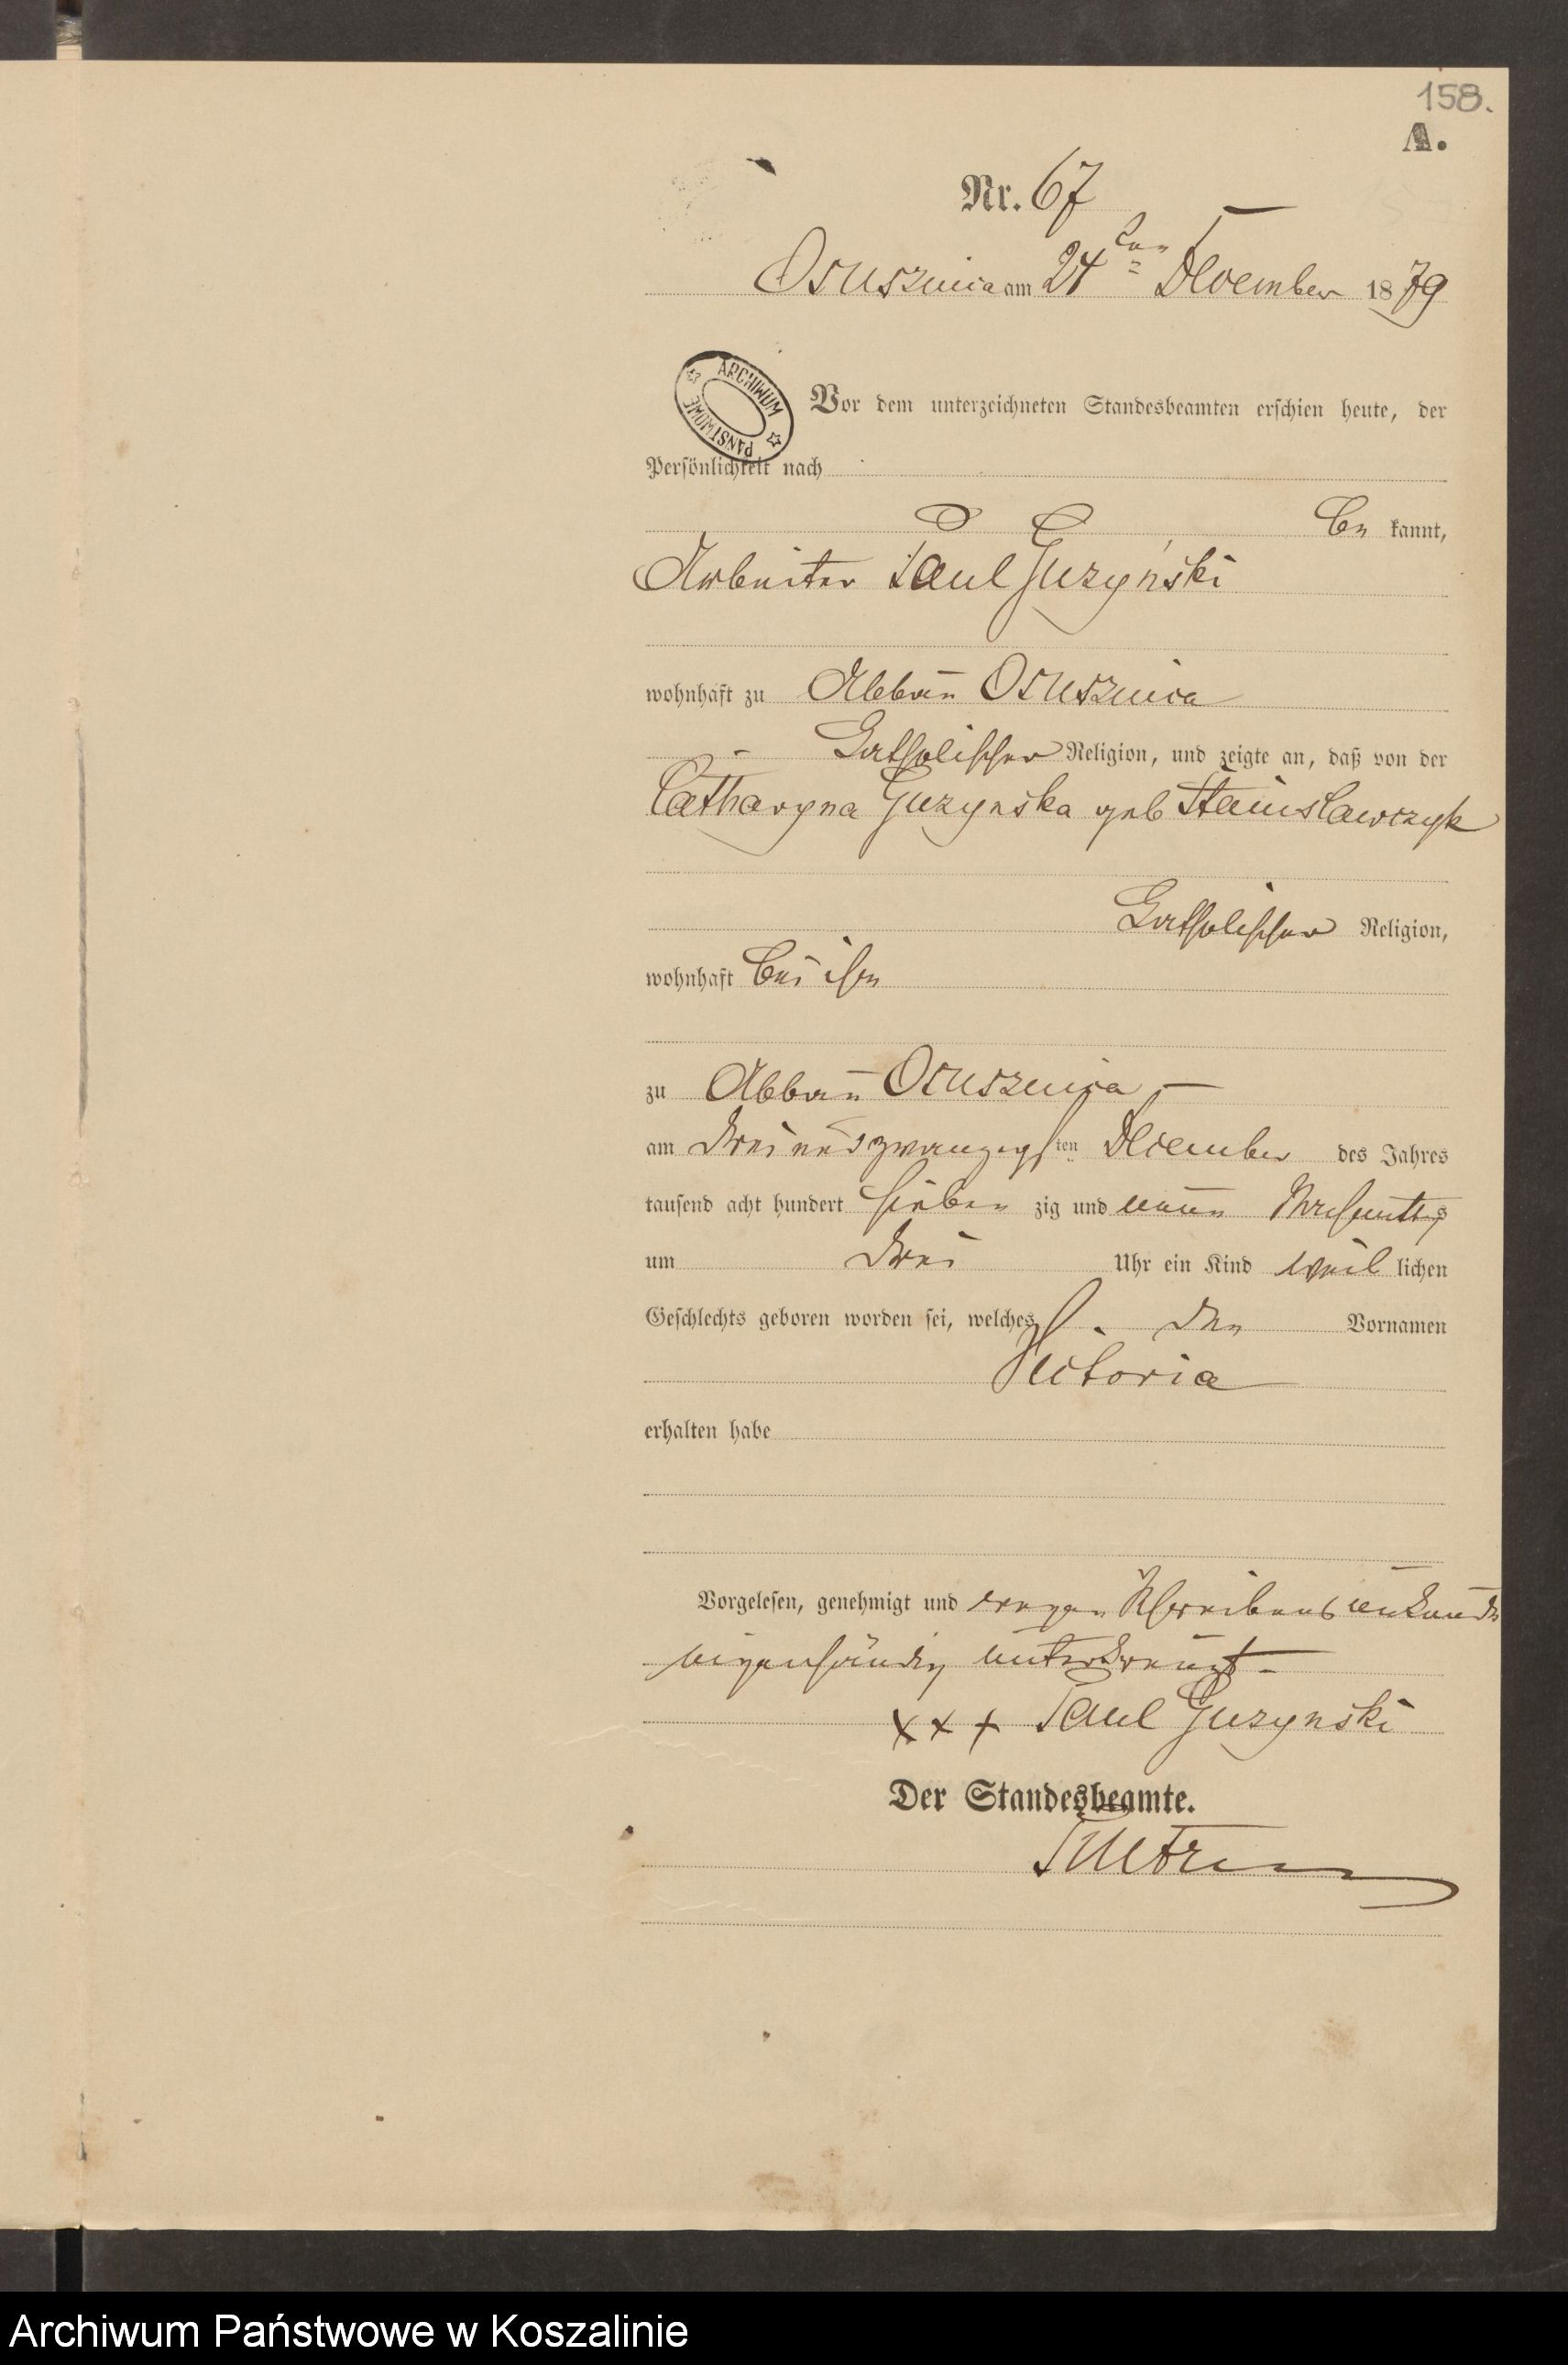 158.
A.
Nr. 67
Osusznica am 24ten December 1879
ARCHIWUM PAŃSTWOWE
Vor dem unterzeichneten Standesbeamten erschien heute, der
Persönlichkeit nach
be kannt,
Arbeiter Paul Guzyński
wohnhaft zu Abbau Osusznica
Catholischer Religion, und zeigte an, daß von der
Catharyna Guzynska geb Stanislawczyk
Catholischer Religion,
wohnhaft bei ihm
zu Abbau Osusznica
am dreiundzwanzigsten December des Jahres
tausend acht hundert sieben zig und neun Nachmittags
um drei Uhr ein Kind weib lichen
Geschlechts geboren worden sei, welches den Vornamen
Victoria
erhalten habe
Vorgelesen, genehmigt und wegen Schreibensunkunde
eigenhändig unterkreuzt
xxx Paul Guzynski
Der Standesbeamte.
Archiwum Państwowe w Koszalinie